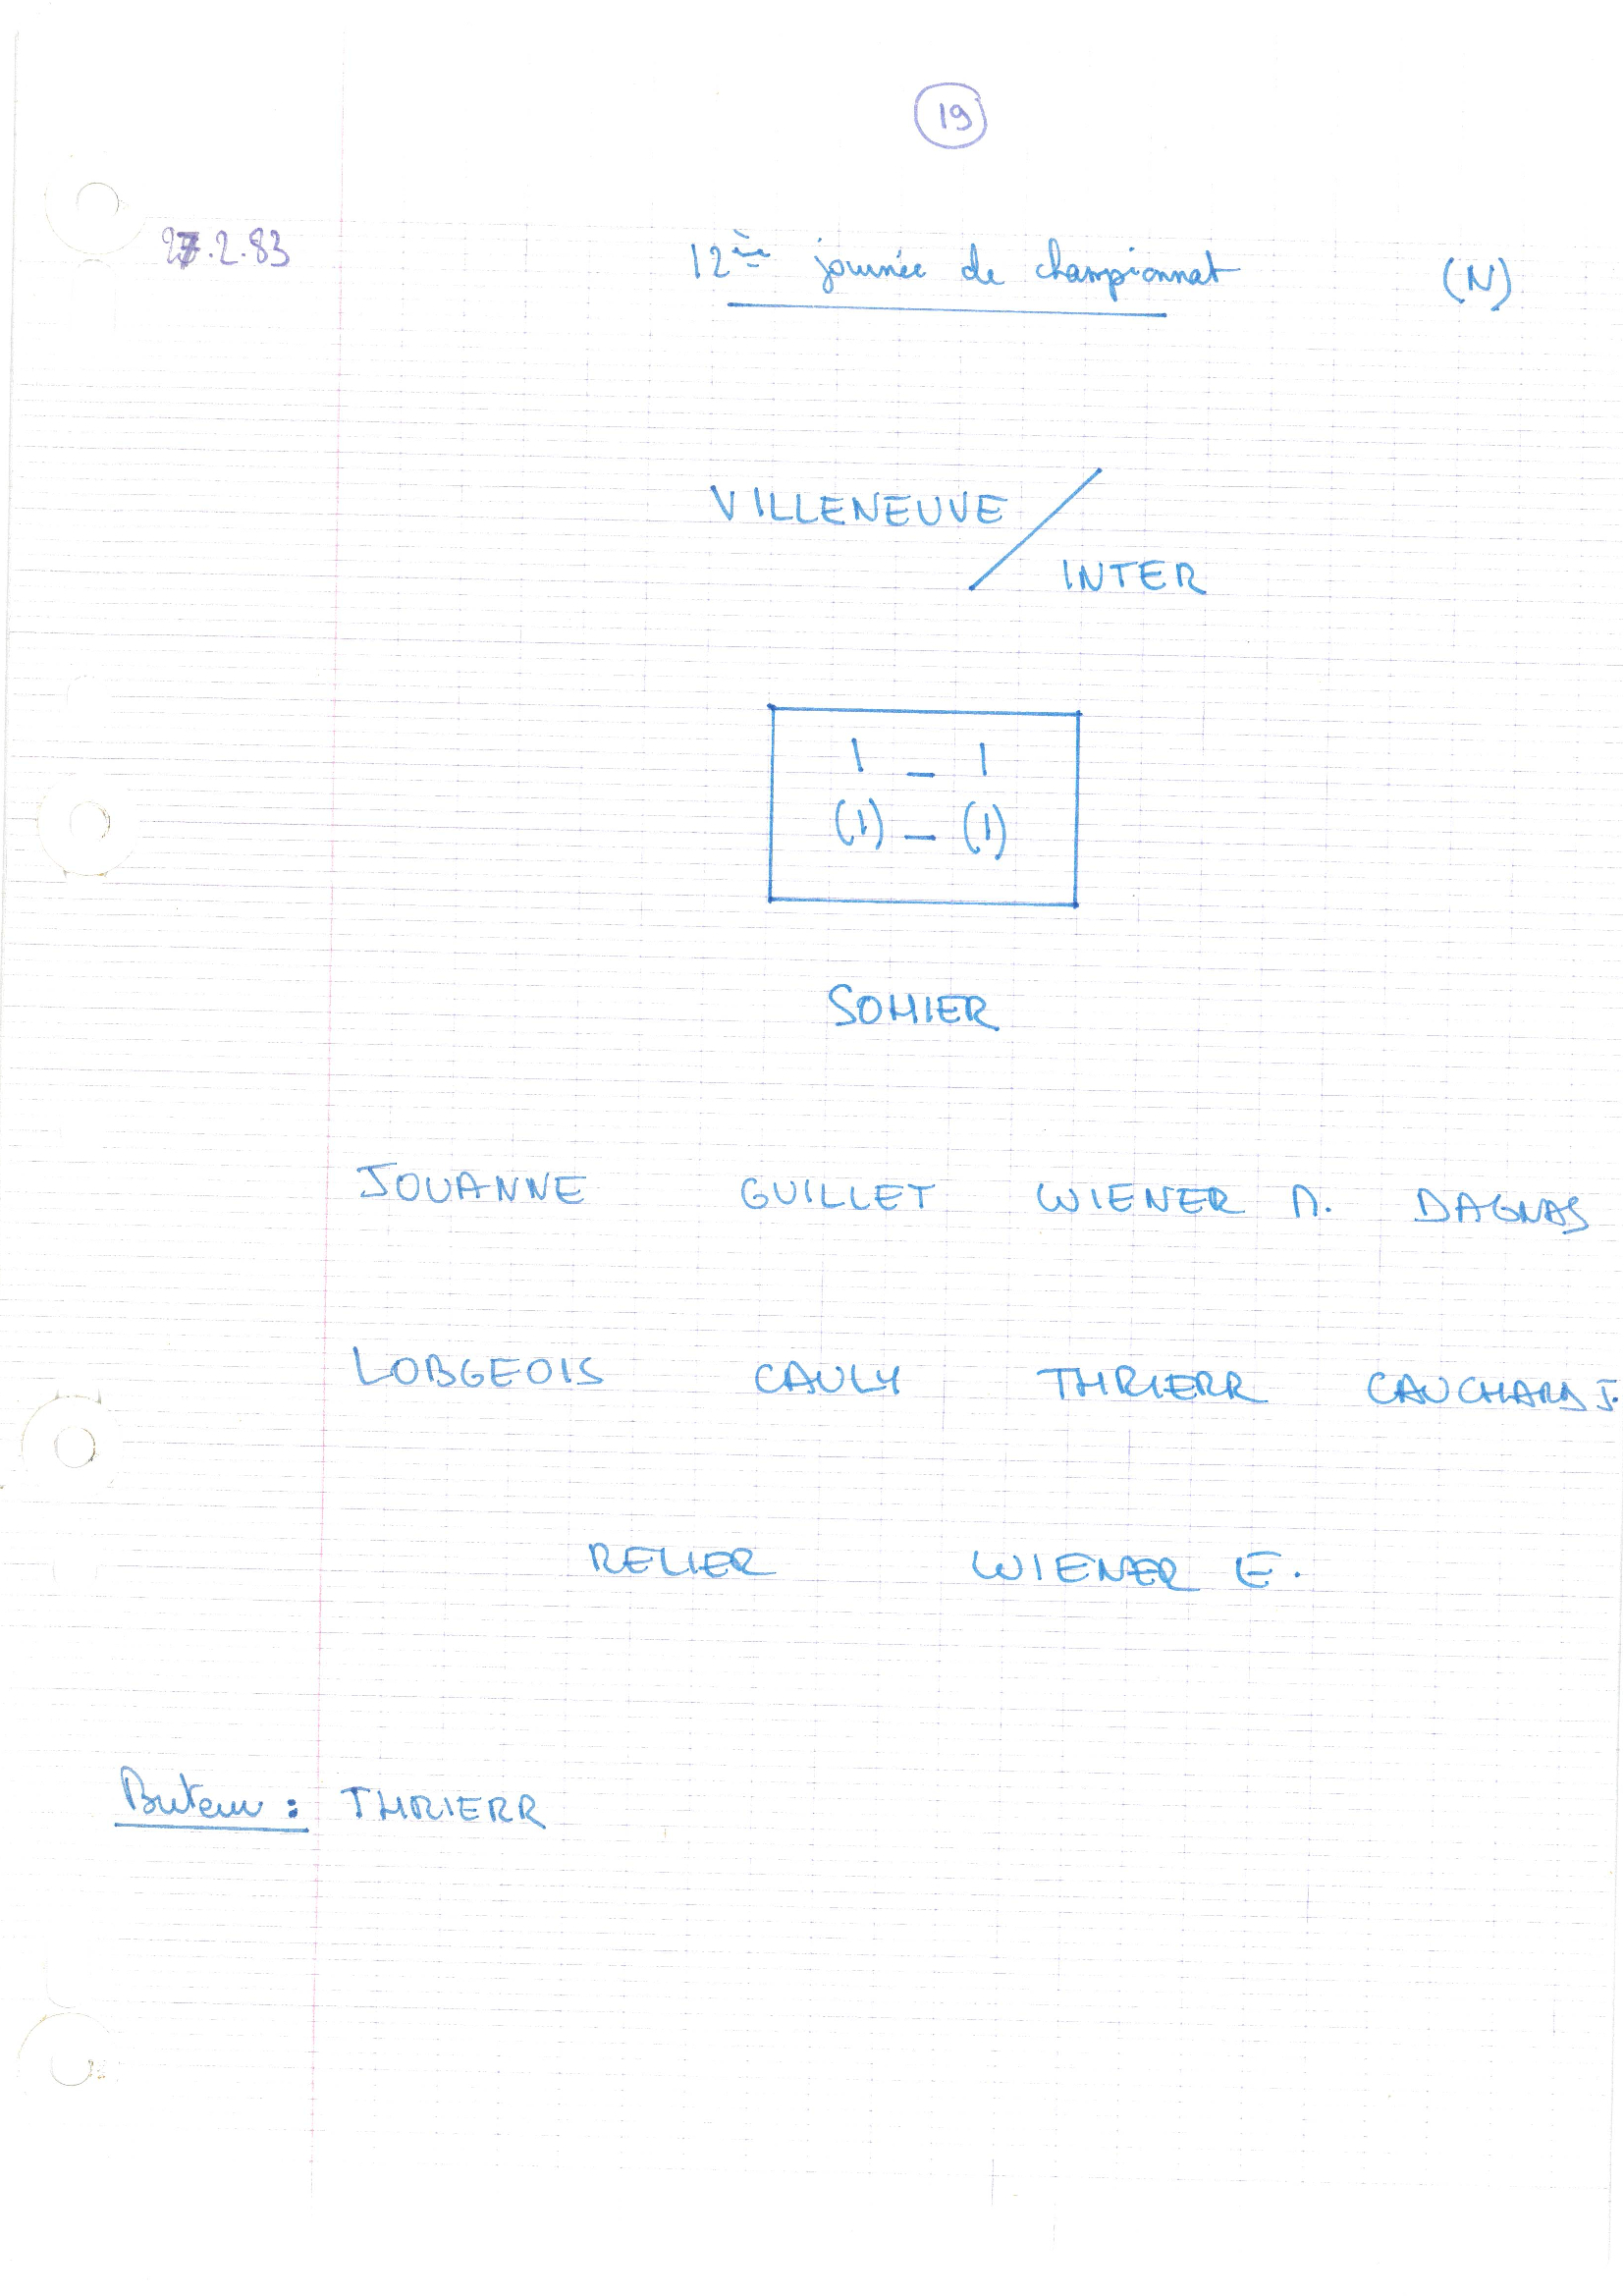 19
27.2.83 12ème journée de championnat (N)
VILLENEUVE / INTER
1 - 1
(1) - (1)
SOMIER
JOUANNE GUILLET WIENER M. DAGNAS
LOBGEOIS CAULY THRIERR CAUCHARD J.
RELIER WIENER E.
Buteur : THRIERR